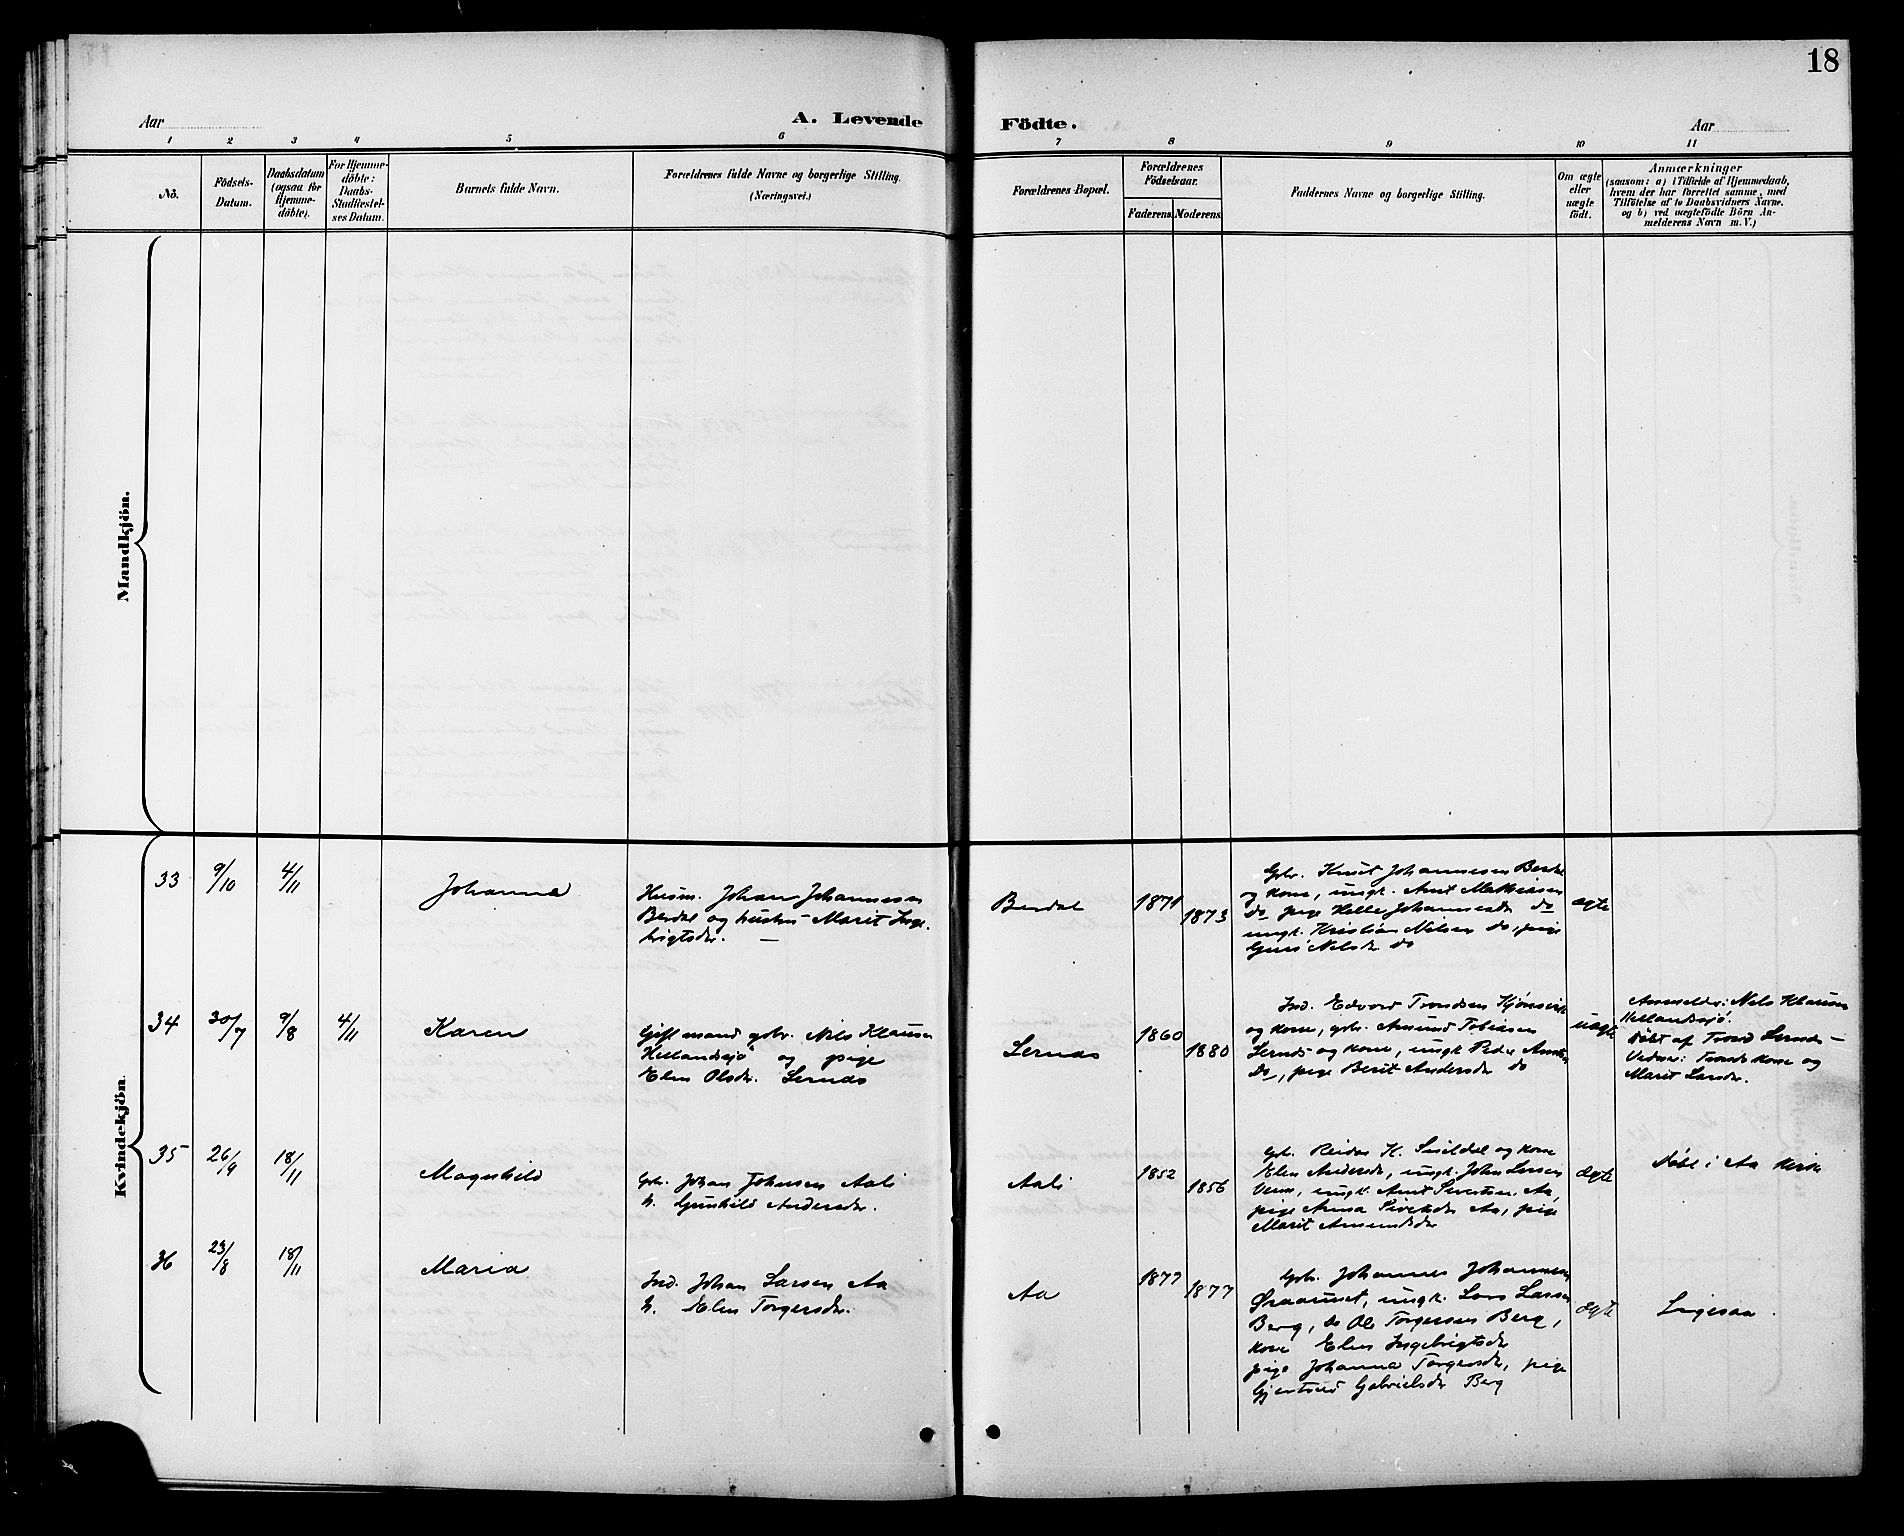 18
Aar
A. Levende
Födte.
Aar
1 2 3 4 5 6 7 8 9 10 11
No.
Födsels-
Datum.
Daabsdatum
(ogsaa för
Hjemme-
döbte).
For Hjemme-
döbte:
Daabs-
Stadfæstel-
ses Datum.
Barnets fulde Navn.
Forældrenes fulde Navne og borgerlige Stilling.
(Næringsvei.)
Forældrenes Bopæl.
Forældrenes
Födselsaar.
Faderens. Moderens.
Faddernes Navne og borgerlige Stilling.
Om ægte
eller
uægte
födt.
Anmærkninger
(saasom: a) i Tilfælde af Hjemmedaab,
hvem der har forrettet samme, med
Tilföielse af to Daabsvidners Navne.
og b) ved uægtefödte Börn An-
melderens Navn m. V.)
Mandkjön.
Kvindekjön.
33
9/10
4/11
Johanna
Husm. Johan Johannesen
Berdal og hustru Marit Inge-
brigtsdr.
Berdal
1871
1873
Gbr. Knut Johannesen Berdal
og kone, ungk. Arnt Mathiassen
do, pige Helle Johannesdr do
ungk. Kristian Nilsen do, pige
Guri Nelsdr. do
ægte
34
30/7
9/8
4/11
Karen
Gift mand gbr. Nils Klausen
Hellandsjø og pige
Elen Olsdr. Lernæs
Lernæs
1860
1880
Ind. Edvard Trondsen Kjønsvik
og kone, gbr. Amund Tobiasen
Lernæs og kone, ungk. Peder
Do, pige Berit Andersdr do
uægte
Anmelder: Nils Klausen
Hellandsjø.
Døbt af Trond Lernæs
Vidner: Tronds kone og
Marit Larsdr.
35
26/9
18/11
Magnhild
Gbr. Johan Johnsen Aali
h. Gunhild Andersdr.
Aali
1852
1856
Gbr. Reidar H. og kone
Elen Andersdr, ungk. John Larsen
ungk. Arnt Sivertsen Aa,
pige Anna Aa, pige
Marit Amundsdr
ægte
Døbt i Aa Kirke
36
23/8
18/11
Maria
Ind. Johan Larsen Aa
h. Elen Torgersdr.
Aa
1877
1877
Gbr. Johannes Johannesen
ungk. Lars Larsen
Berg, do Ole Torgersen Berg,
kone Elen Ingebrigtsdr
pige Johanna Torgersdr, pige
Gjertrud Gabrielsdr Berg
ægte
Ligesaa.